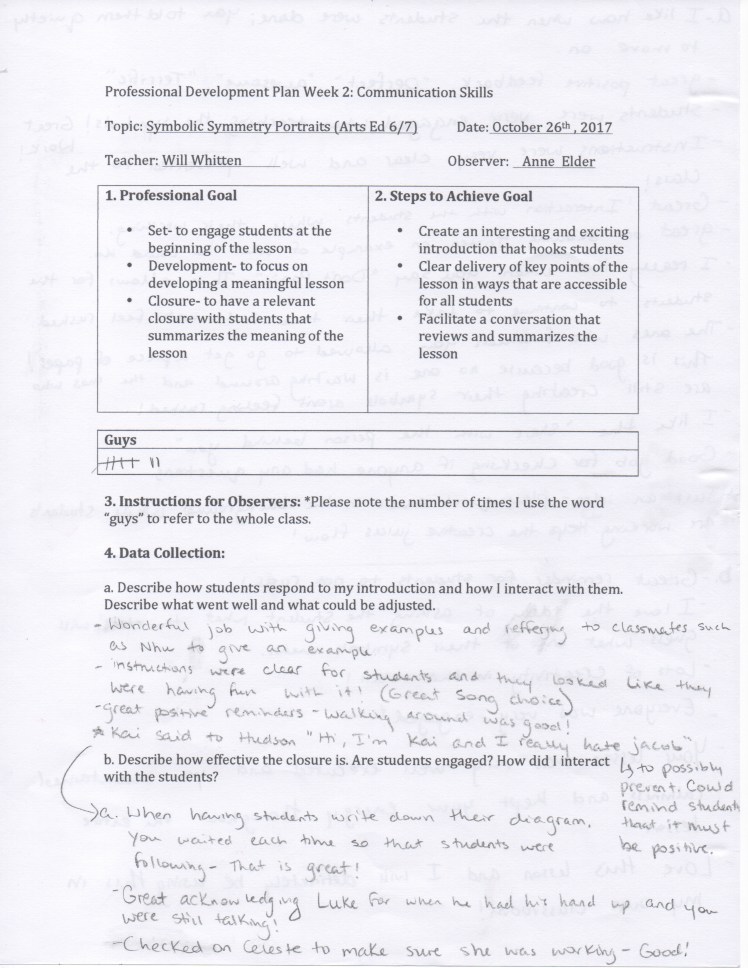 Professional Development Plan Week 2: Communication Skills
Topic: Symbolic Symmetry Portraits (Arts Ed 6/7) Date: October 26th , 2017
Teacher: Will Whitten Observer: Anne Elder
1. Professional Goal
• Set- to engage students at the
beginning of the lesson
• Development- to focus on
developing a meaningful lesson
• Closure- to have a relevant
closure with students that
summarizes the meaning of the
lesson
2. Steps to Achieve Goal
• Create an interesting and exciting
introduction that hooks students
• Clear delivery of key points of the
lesson in ways that are accessible
for all students
• Facilitate a conversation that
reviews and summarizes the
lesson
Guys
3. Instructions for Observers: *Please note the number of times I use the word
“guys” to refer to the whole class.
4. Data Collection:
a. Describe how students respond to my introduction and how I interact with them.
Describe what went well and what could be adjusted.
- Wonderful job with giving examples and reffering to classmates such
as Nhu to give an example
- instructions were clear for students and they looked like they
were having fun with it! (Great song choice)
- great positive reminders - walking around was good!
* Kai said to Hudson "Hi, I'm Kai and I really hate jacob"
↳ to possibly
prevent. Could
remind students
that it must
be positive.
b. Describe how effective the closure is. Are students engaged? How did I interact
with the students?
a. When having students write down their diagram.
you waited each time so that students were
following - That is great!
- Great acknowledging Luke for when he had his hand up and you
were still talking!
- Checked on Celeste to make sure she was working - Good!